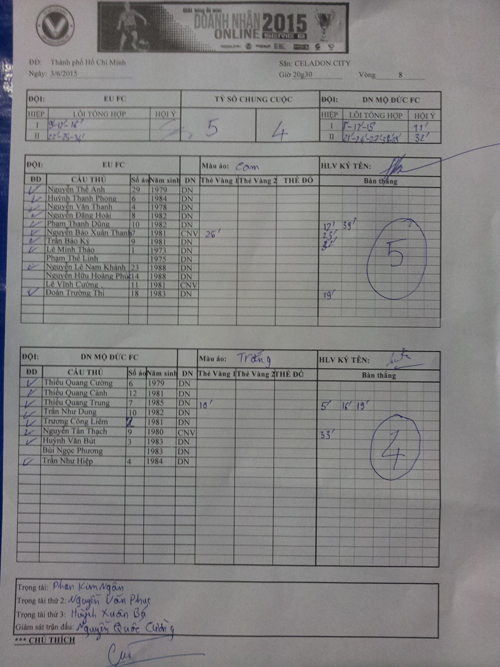 GIẢI BÓNG ĐÁ MINI
DOANH NHÂN 2015
ONLINE SERIE B
ĐĐ: Thành phố Hồ Chí Minh Sân: CELADON CITY
Ngày: 3/6/2015 Giờ 20g30 Vòng 8
ĐỘI: EU FC TỶ SỐ CHUNG CUỘC ĐỘI: DN MỘ ĐỨC FC
HIỆP LỖI TỔNG HỢP HỘI Ý 5 4 HIỆP LỖI TỔNG HỢP HỘI Ý
I I 11'
II II 32'
ĐỘI: EU FC Màu áo: Cam HLV KÝ TÊN:
ĐD CẦU THỦ Số áo Năm sinh DN Thẻ Vàng 1 Thẻ Vàng 2 THẺ ĐỎ Bàn thắng
Nguyễn Thế Anh 29 1979 DN
Huỳnh Thanh Phong 6 1984 DN
Nguyễn Văn Thanh 4 1978 DN
Nguyễn Đăng Hoài 8 1982 DN
Phạm Thanh Dũng 10 1982 DN
Nguyễn Bảo Xuân Thanh 7 1981 CNV 26'
Trần Bảo Kỳ 9 1981 DN
Lê Minh Thảo 1 1973 DN
Phạm Thế Linh 1975 DN
Nguyễn Lê Nam Khánh 23 1988 DN
Nguyễn Hữu Hoàng Phúc 14 1988 DN
Lê Vĩnh Cường 11 1981 CNV
Đoàn Trường Thi 18 1983 DN 19'
5
ĐỘI: DN MỘ ĐỨC FC Màu áo: Trắng HLV KÝ TÊN:
ĐD CẦU THỦ Số áo Năm sinh DN Thẻ Vàng 1 Thẻ Vàng 2 THẺ ĐỎ Bàn thắng
Thiều Quang Cường 6 1979 DN
Thiều Quang Cảnh 12 1981 DN
Thiều Quang Trung 7 1985 DN 10' 5' 16' 19'
Trần Như Dung 10 1982 DN
Trương Công Liêm 1981 DN
Nguyễn Tấn Thạch 9 1980 CNV 33'
Huỳnh Văn Bút 3 1983 DN
Bùi Ngọc Phương 1983 DN
Trần Như Hiệp 4 1984 DN
4
Trọng tài: Phan Kim Ngân
Trọng tài thứ 2: Nguyễn Văn Phục
Trọng tài thứ 3: Huỳnh Xuân Bá
Giám sát trận đấu: Nguyễn Quốc Cường
*** CHÚ THÍCH